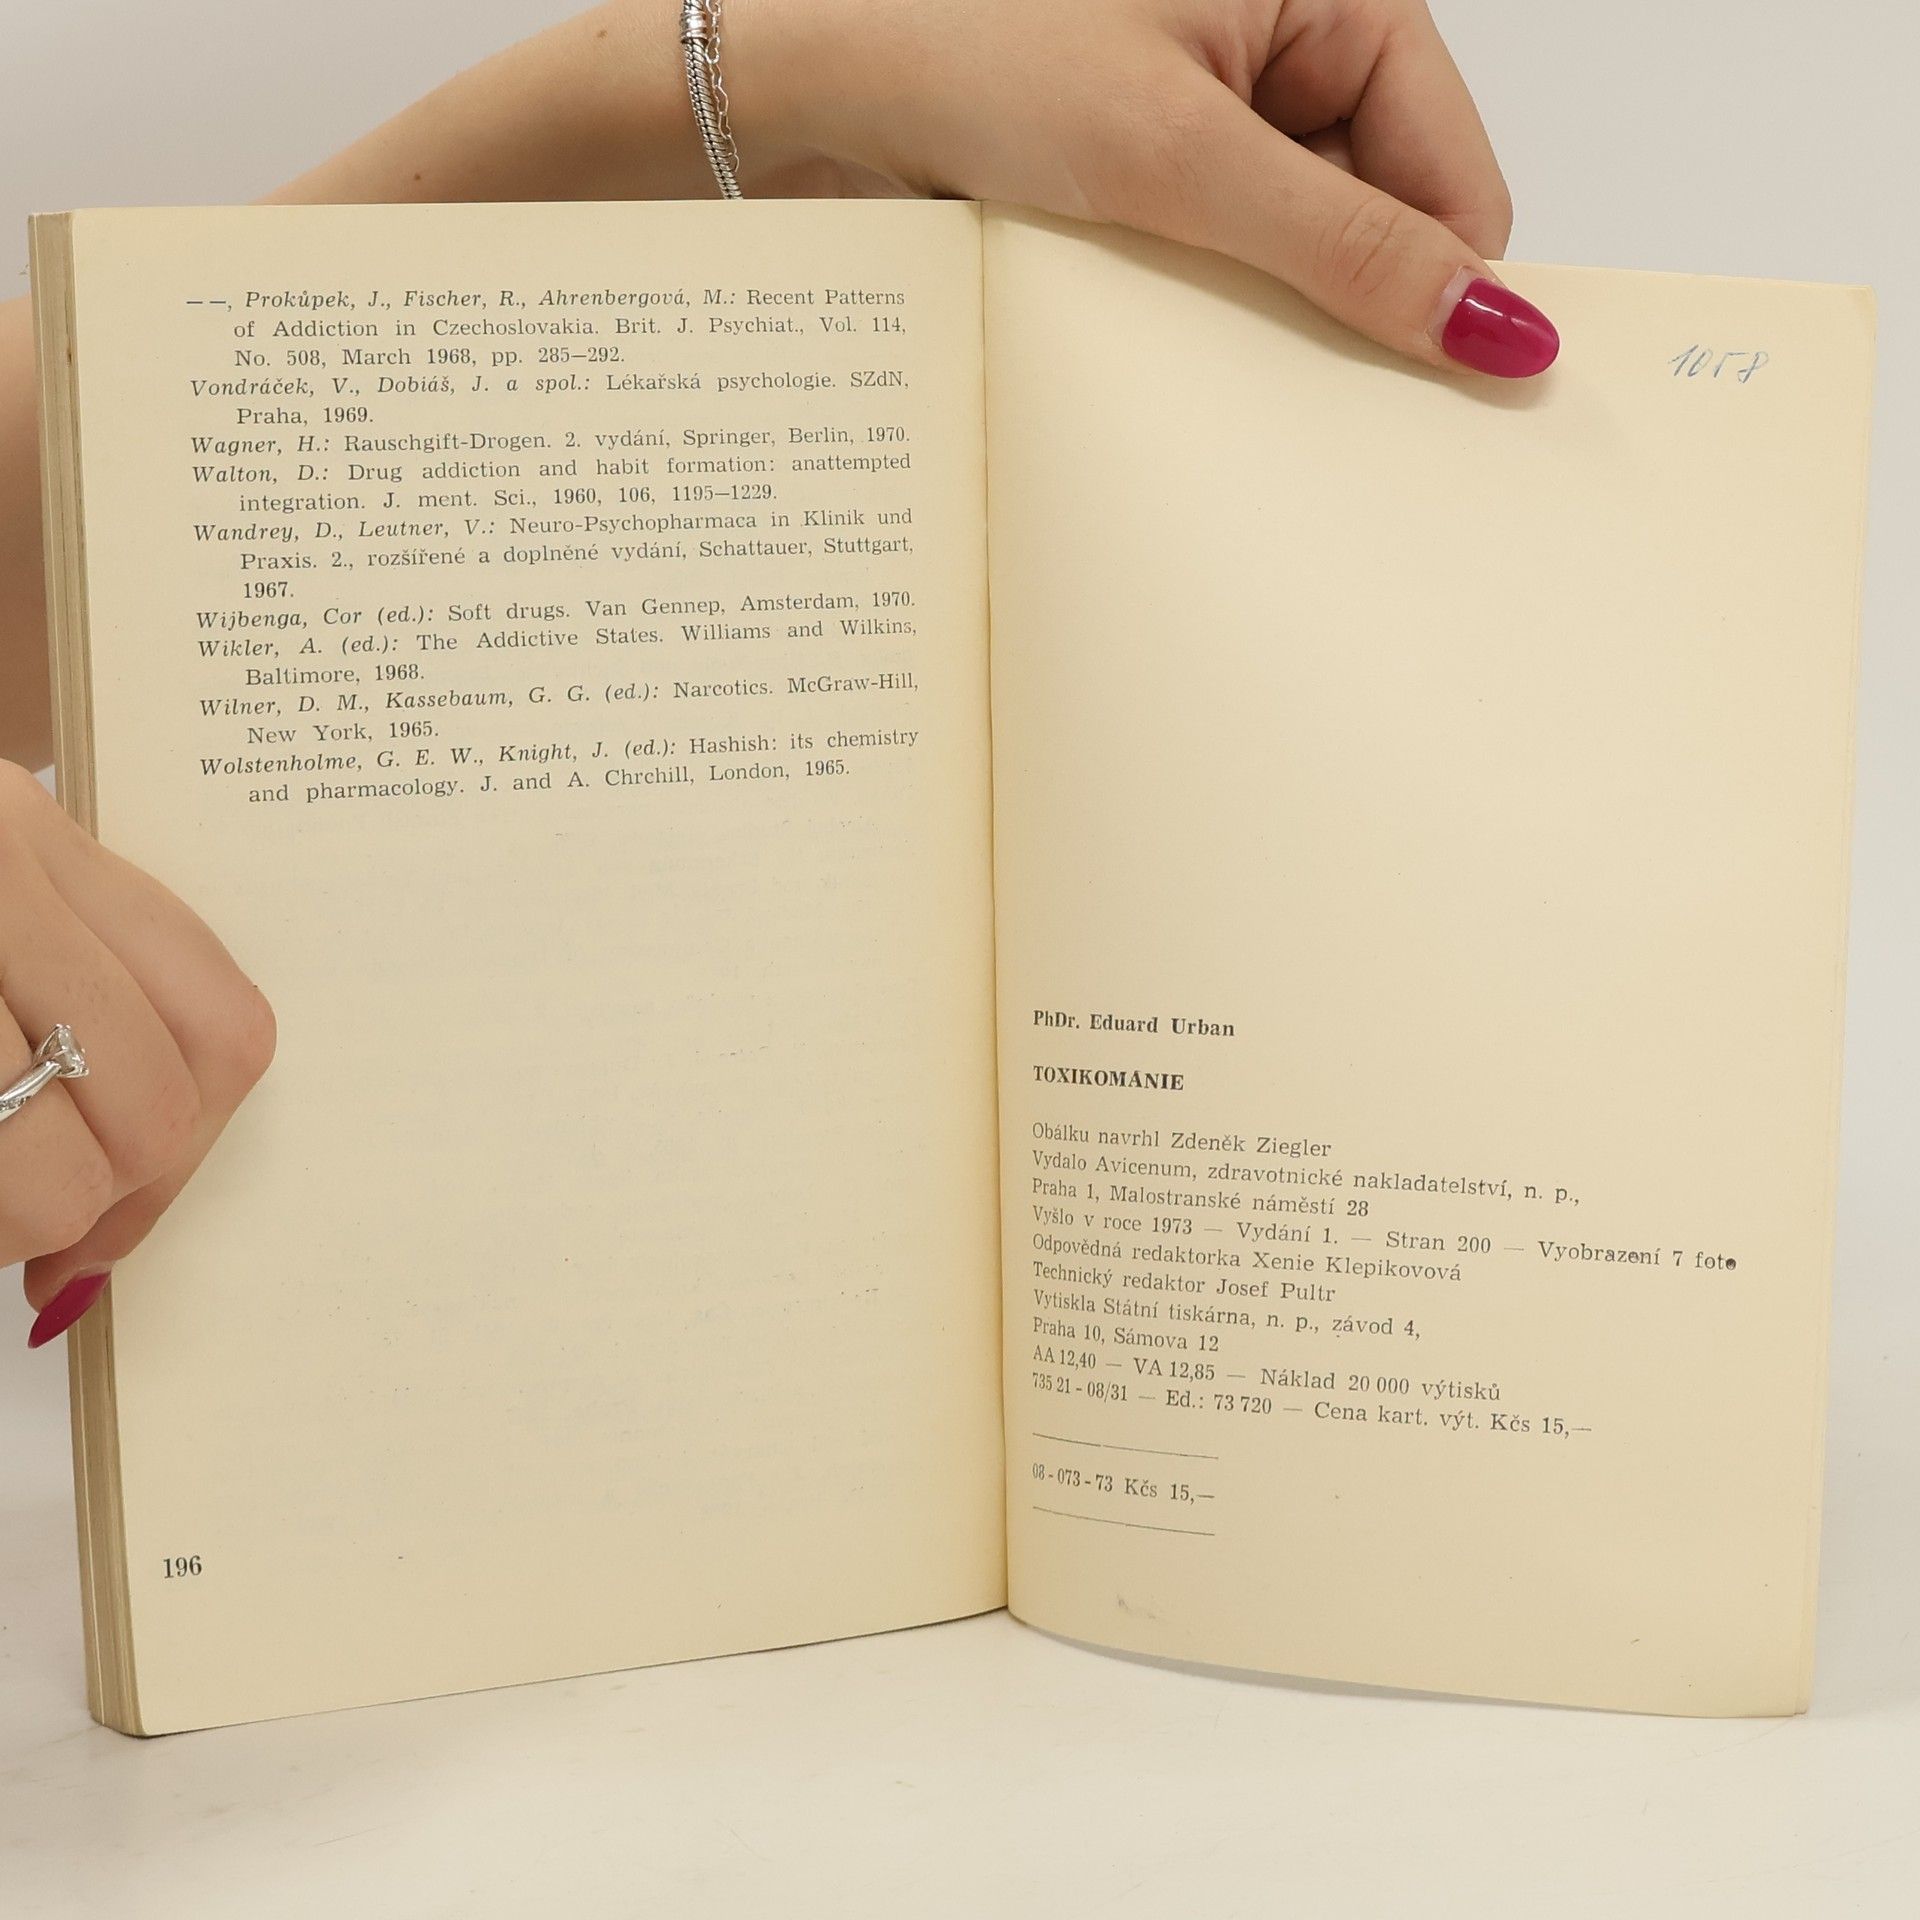 — —, Prokůpek, J., Fischer, R., Ahrenbergová, M.: Recent Patterns
of Addiction in Czechoslovakia. Brit. J. Psychiat., Vol. 114,
No. 508, March 1968, pp. 285—292.
Vondráček, V., Dobiáš, J. a spol.: Lékařská psychologie. SZdN,
Praha, 1969.
Wagner, H.: Rauschgift-Drogen. 2. vydání, Springer, Berlin, 1970.
Walton, D.: Drug addiction and habit formation: anattempted
integration. J. ment. Sci., 1960, 106, 1195—1229.
Wandrey, D., Leutner, V.: Neuro-Psychopharmaca in Klinik und
Praxis. 2., rozšířené a doplněné vydání, Schattauer, Stuttgart,
1967.
Wijbenga, Cor (ed.): Soft drugs. Van Gennep, Amsterdam, 1970.
Wikler, A. (ed.): The Addictive States. Williams and Wilkins,
Baltimore, 1968.
Wilner, D. M., Kassebaum, G. G. (ed.): Narcotics. McGraw-Hill,
New York, 1965.
Wolstenholme, G. E. W., Knight, J. (ed.): Hashish: its chemistry
and pharmacology. J. and A. Chrchill, London, 1965.
196
1058
PhDr. Eduard Urban
TOXIKOMÁNIE
Obálku navrhl Zdeněk Ziegler
Vydalo Avicenum, zdravotnické nakladatelství, n. p.,
Praha 1, Malostranské náměstí 28
Vyšlo v roce 1973 — Vydání 1. — Stran 200 — Vyobrazení 7 foto
Odpovědná redaktorka Xenie Klepikovová
Technický redaktor Josef Pultr
Vytiskla Státní tiskárna, n. p., závod 4,
Praha 10, Sámova 12
AA 12,40 — VA 12,85 — Náklad 20 000 výtisků
735 21 - 08/31 — Ed.: 73 720 — Cena kart. výt. Kčs 15,—
08 - 073 - 73 Kčs 15,—